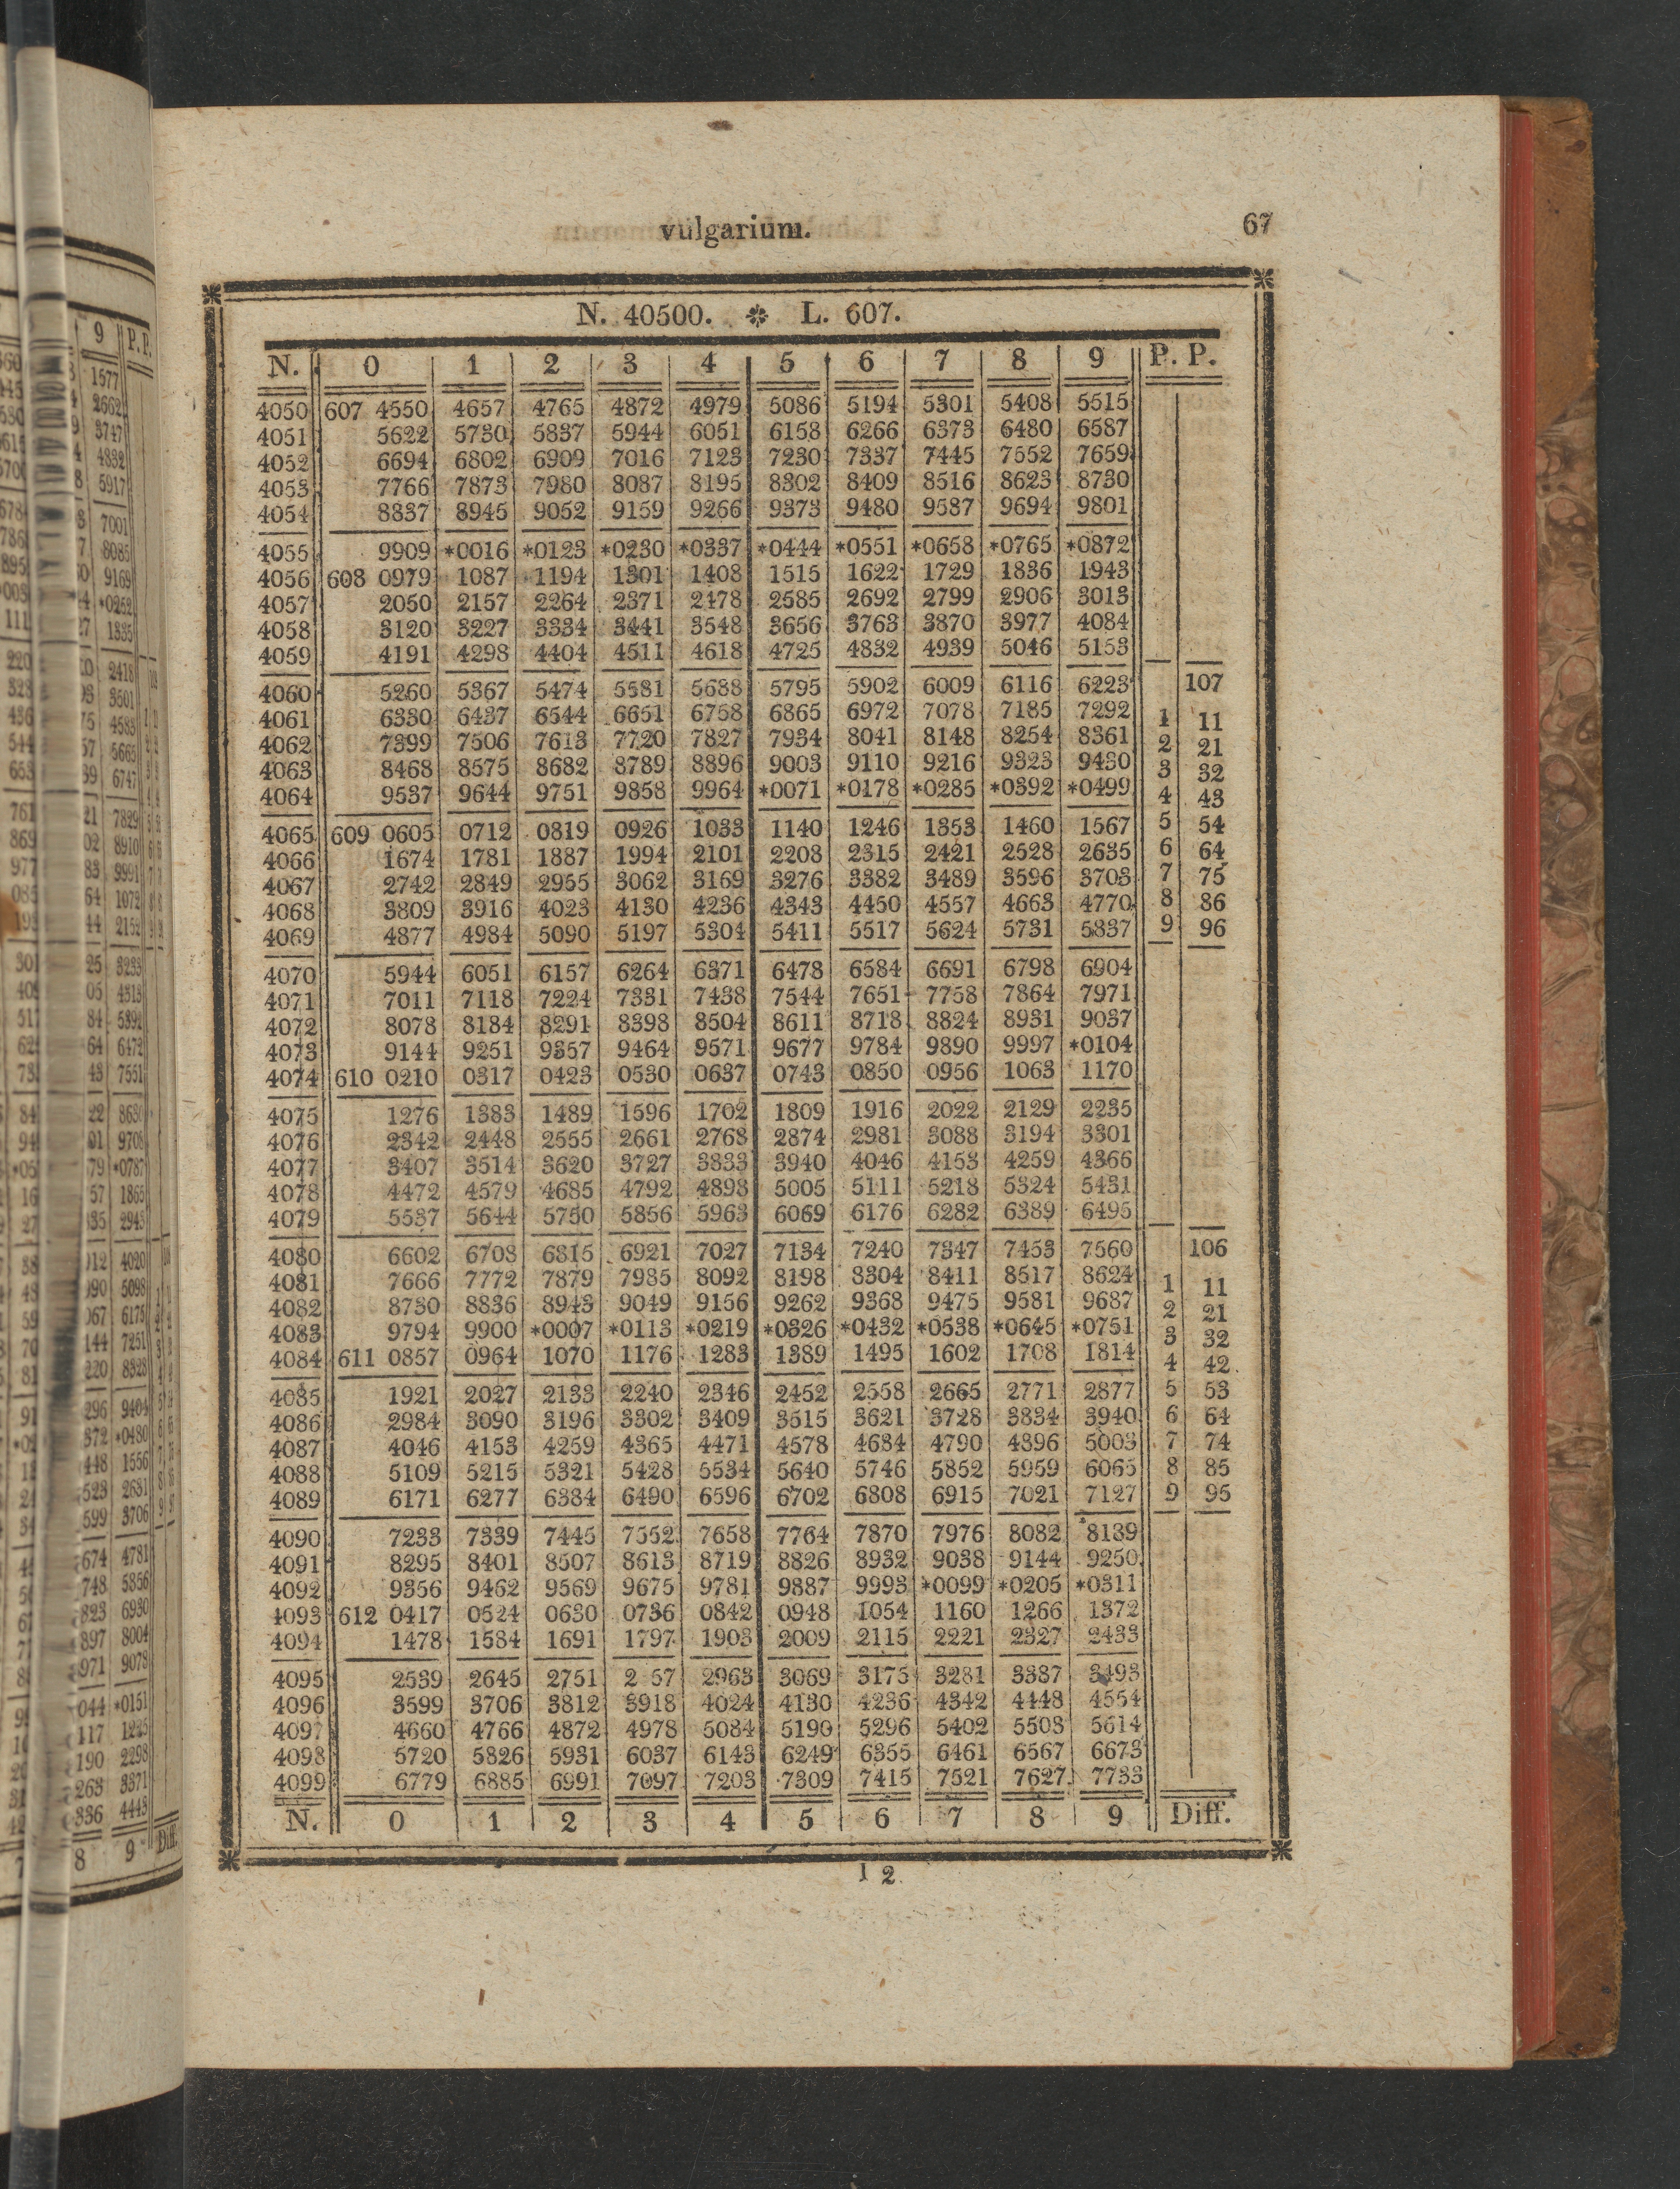 vulgarium. 67
N. 40500. L. 607.
N. 0 1 2 3 4 5 6 7 8 9 P. P.
4050 607 4550 4657 4765 4872 4979 5086 5194 5301 5408 5515
4051 5622 5730 5837 5944 6051 6158 6266 6373 6480 6587
4052 6694 6802 6909 7016 7123 7230 7337 7445 7552 7659
4053 7766 7873 7980 8087 8195 8302 8409 8516 8623 8730
4054 8837 8945 9052 9159 9266 9373 9480 9587 9694 9801
4055 9909 *0016 *0123 *0230 *0337 *0444 *0551 *0658 *0765 *0872
4056 608 0979 1087 1194 1301 1408 1515 1622 1729 1836 1943
4057 2050 2157 2264 2371 2478 2585 2692 2799 2906 3013
4058 3120 3227 3334 3441 3548 3656 3763 3870 3977 4084
4059 4191 4298 4404 4511 4618 4725 4832 4939 5046 5153
4060 5260 5367 5474 5581 5688 5795 5902 6009 6116 6223 107
4061 6330 6437 6544 6651 6758 6865 6972 7078 7185 7292 1 11
4062 7399 7506 7613 7720 7827 7934 8041 8148 8254 8361 2 21
4063 8468 8575 8682 8789 8896 9003 9110 9216 9323 9430 3 32
4064 9537 9644 9751 9858 9964 *0071 *0178 *0285 *0392 *0499 4 43
4065 609 0605 0712 0819 0926 1033 1140 1246 1353 1460 1567 5 54
4066 1674 1781 1887 1994 2101 2208 2315 2421 2528 2635 6 64
4067 2742 2849 2955 3062 3169 3276 3382 3489 3596 3703 7 75
4068 3809 3916 4023 4130 4236 4343 4450 4557 4663 4770 8 86
4069 4877 4984 5090 5197 5304 5411 5517 5624 5731 5837 9 96
4070 5944 6051 6157 6264 6371 6478 6584 6691 6798 6904
4071 7011 7118 7224 7331 7438 7544 7651 7758 7864 7971
4072 8078 8184 8291 8398 8504 8611 8718 8824 8931 9037
4073 9144 9251 9357 9464 9571 9677 9784 9890 9997 *0104
4074 610 0210 0317 0423 0530 0637 0743 0850 0956 1063 1170
4075 1276 1383 1489 1596 1702 1809 1916 2022 2129 2235
4076 2342 2448 2555 2661 2768 2874 2981 3088 3194 3301
4077 3407 3514 3620 3727 3833 3940 4046 4153 4259 4366
4078 4472 4579 4685 4792 4898 5005 5111 5218 5324 5431
4079 5537 5644 5750 5856 5963 6069 6176 6282 6389 6495
4080 6602 6708 6815 6921 7027 7134 7240 7347 7453 7560 106
4081 7666 7772 7879 7985 8092 8198 8304 8411 8517 8624 1 11
4082 8730 8836 8943 9049 9156 9262 9368 9475 9581 9687 2 21
4083 9794 9900 *0007 *0113 *0219 *0326 *0432 *0538 *0645 *0751 3 32
4084 611 0857 0964 1070 1176 1283 1389 1495 1602 1708 1814 4 42
4085 1921 2027 2133 2240 2346 2452 2558 2665 2771 2877 5 53
4086 2984 3090 3196 3302 3409 3515 3621 3728 3834 3940 6 64
4087 4046 4153 4259 4365 4471 4578 4684 4790 4896 5003 7 74
4088 5109 5215 5321 5428 5534 5640 5746 5852 5959 6065 8 85
4089 6171 6277 6384 6490 6596 6702 6808 6915 7021 7127 9 95
4090 7233 7339 7445 7552 7658 7764 7870 7976 8082 8189
4091 8295 8401 8507 8613 8719 8826 8932 9038 9144 9250
4092 9356 9462 9569 9675 9781 9887 9993 *0099 *0205 *0311
4093 612 0417 0524 0630 0736 0842 0948 1054 1160 1266 1372
4094 1478 1584 1691 1797 1903 2009 2115 2221 2327 2433
4095 2539 2645 2751 2 57 2963 3069 3175 3281 3387 3493
4096 3599 3706 3812 3918 4024 4130 4236 4342 4448 4554
4097 4660 4766 4872 4978 5084 5190 5296 5402 5508 5614
4098 5720 5826 5931 6037 6143 6249 6355 6461 6567 6673
4099 6779 6885 6991 7097 7203 7309 7415 7521 7627 7733
N. 0 1 2 3 4 5 6 7 8 9 Diff.
I 2